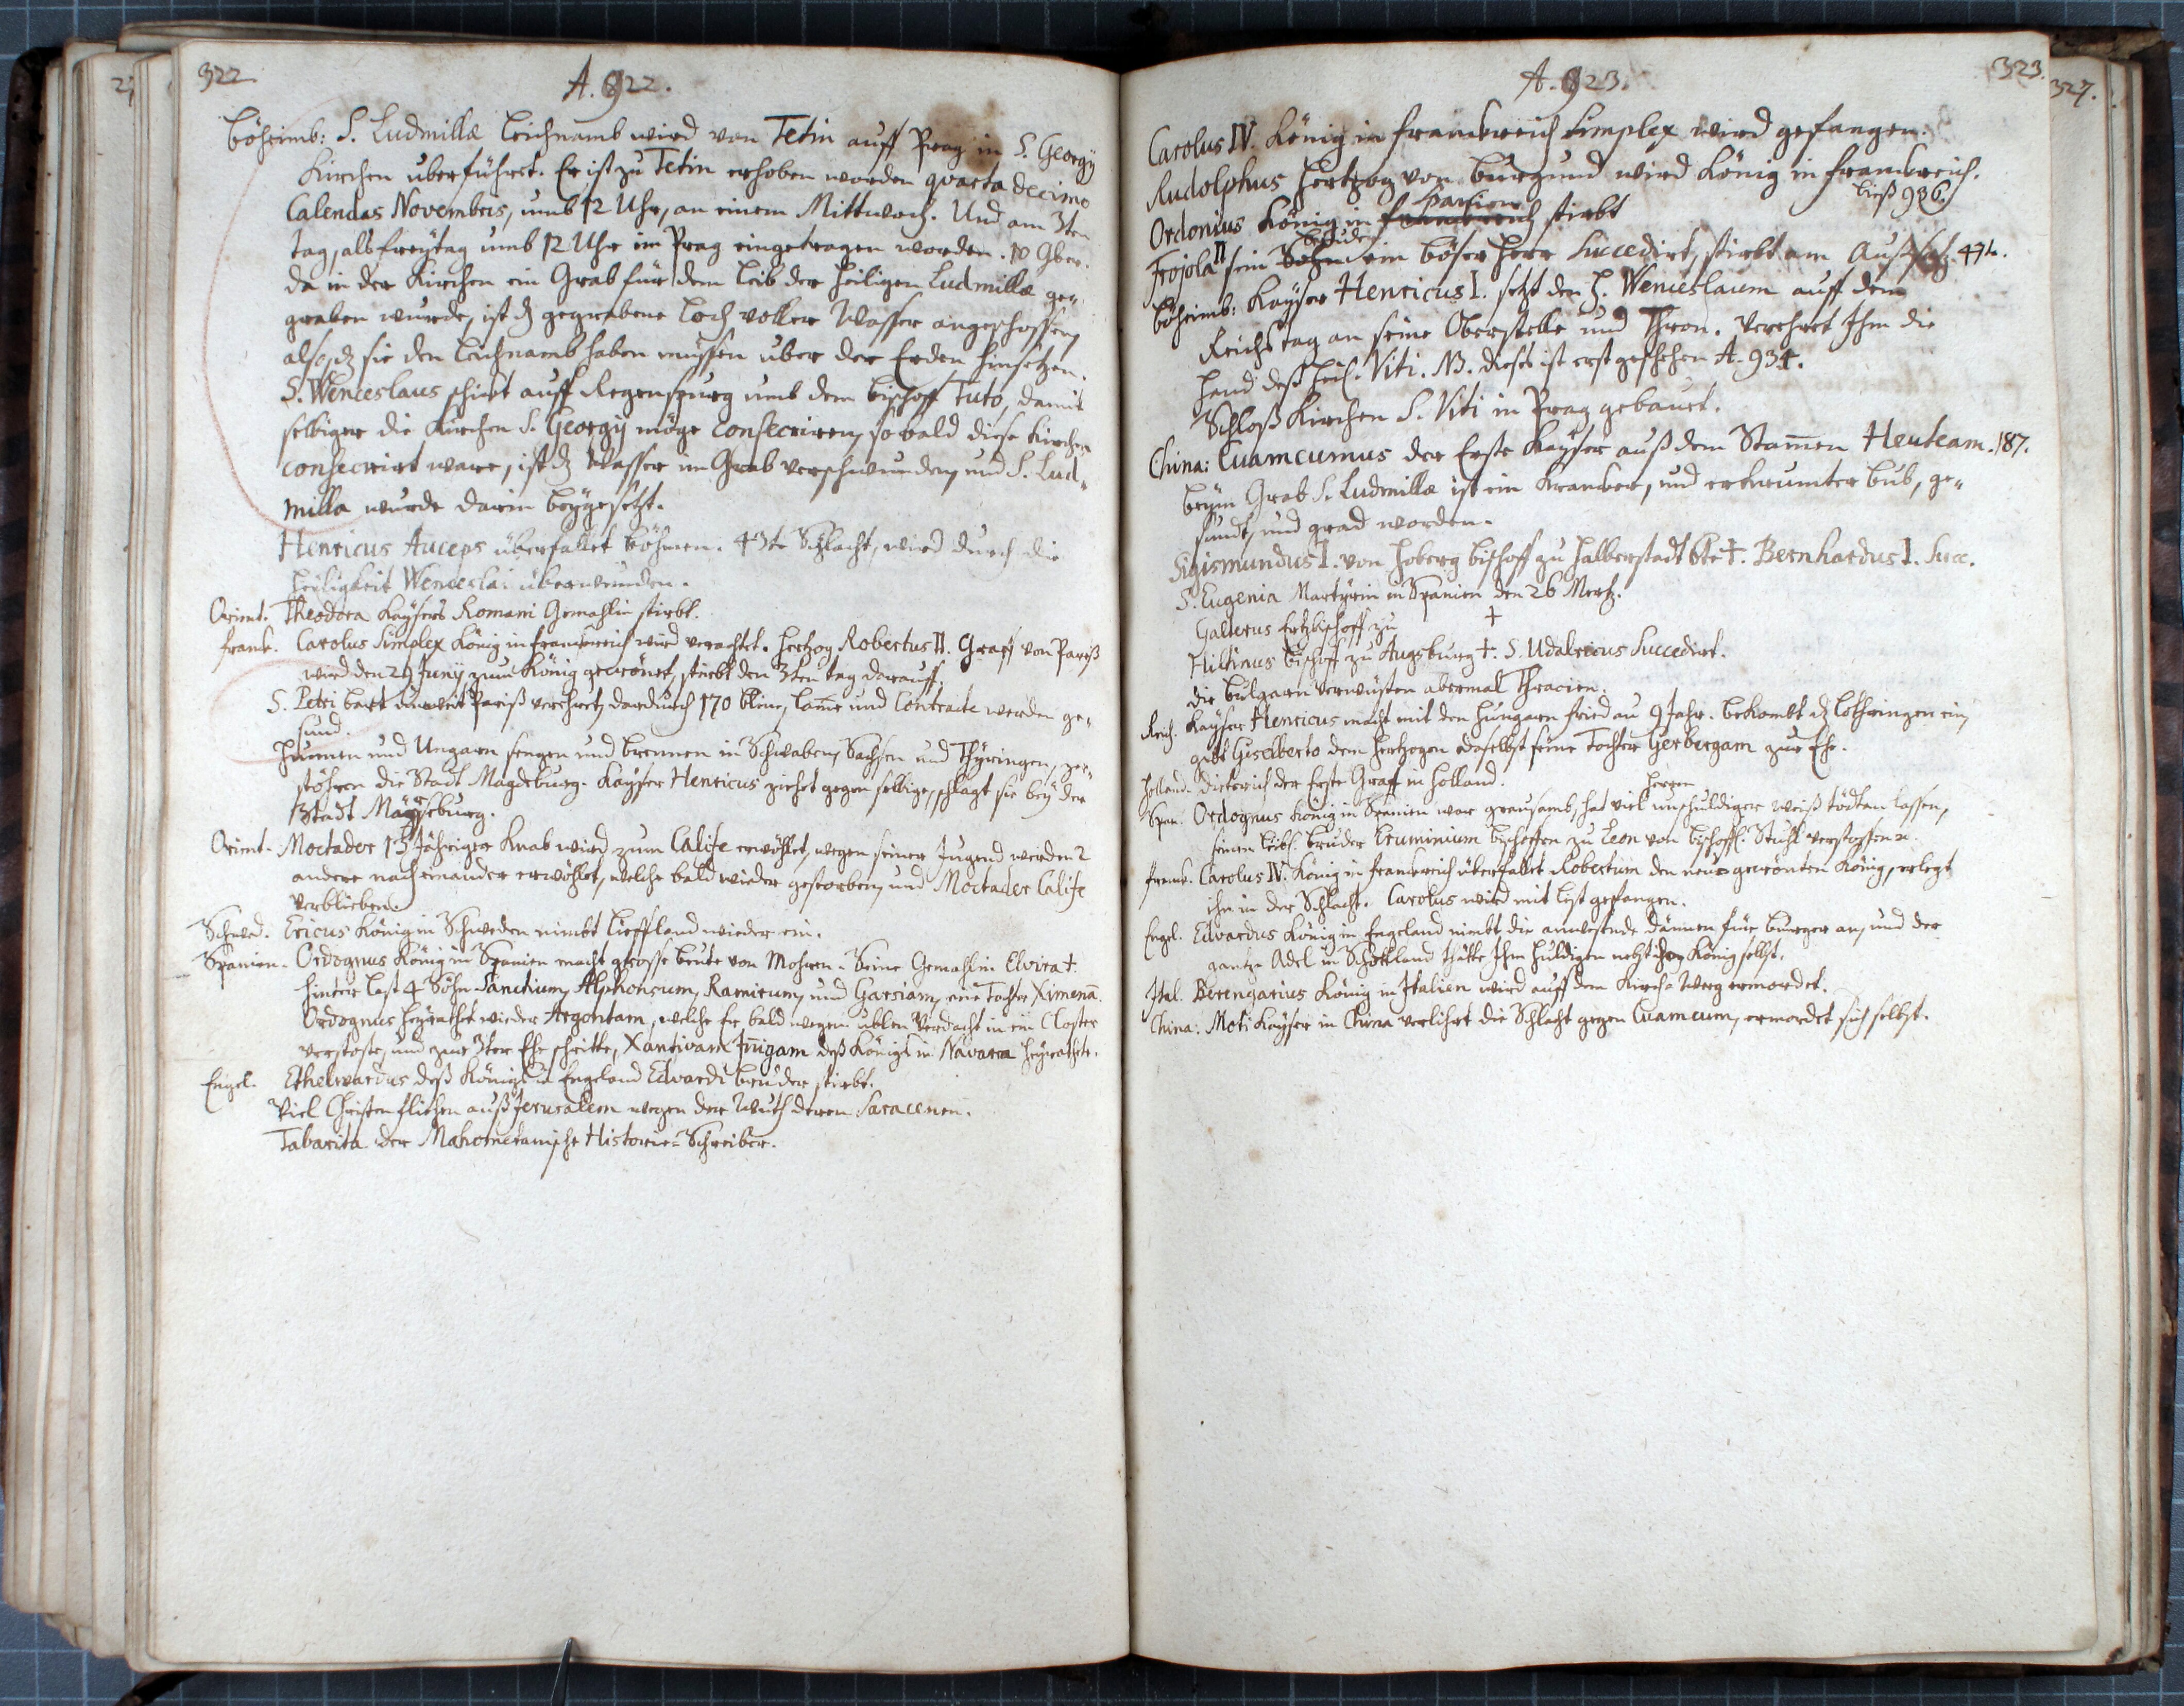 322
A. 922.
Böheimb: S. Ludmillæ leichnamb wird von Tetin auff Prag in S. Georgÿ
Kirchen uberführet. Er ist zu Tetin erhoben worden quarta decimo
Calendas Novembris, umb 12 Uhr, an einem Mittwoch. Und am 3ten
tag, als freÿtag umb 12 Uhr in Prag eingetragen worden. 10 9ber.
da in der Kirchen ein Grab für dem leib der heiligen Ludmillæ ge„
graben wurde, ist dz gegrabene loch voller Wasser angeschossen,
also, dz sie den leichnamb haben müssen uber der Erden hinsetzen.
S. Wenceslaus schickt auff Regenspurg umb dem bischoff Tuto, damit
selbiger die Kirchen S. Georgÿ möge consecriren, so bald diese Kirchen
consecrirt ware, ist dz Wasser im Grab verschwunden, und S. Lud„
milla wurde darin beÿgesetzt.
Henricus Auceps überfallet Böhmen. 43te Schlacht, wird durch die
heiligkeit Wenceslai überwunden.
Orient. Theodora Kaÿsers Romani Gemahlin stirbt.
Frank. Carolus Simplex König in Franckreich wird verachtet. Hertzog Robertus II. Graff von Pariß
wird den 29 Junÿ zum König gecrönet, stirbt den 3ten tag darauff.
S. Petri bart unweit Pariß verehret, dardurch 170 bline, lam̄e und Contracte werden ge„
sund.
Hunnen und Ungarn sengen und brennen in Schwaben, Sachsen und Thÿringen, zer„
stöhren die Stadt Magdeburg. Kaÿser Henricus ziehet gegen selbige, schlagt sie beÿ der
Stadt Märseburg.
Orient. Moctader 13 Jähriger Knab wird zum Calife erwöhlet, wegen seiner Jugend werden 2
andere nach einander erwöhlet, welche bald wieder gestorben, und Moctader Calife
verblieben.
Schwed. Ericus König in Schweden nimbt Lieffland wieder ein.
Spanien. Ordognus König in Spanien macht grosse beute von Mohren. Seine Gemahlin Elvira †.
hinter last 4 Söhn Sanctium, Alphonsum, Ramirum, und Garsiam, eine Tochter Ximenā.
Ordognus heÿrathet wieder Argontam, welche Er bald wegen ublen Verdacht in ein Closter
verstoste, und zur 3ten Ehe schritte, Xantivam Inigam deß Königs in Navarra heÿrathete.
Engel. Ethelwardus deß Königs in Engeland Edvardi bruder stirbt.
Viel Christen fliehen auß Jerusalem wegen der Wuth deren Saracenen.
Tabarita der Mahometanische Historie-Schreiber.
323.
327.
A. 923.
Carolus IV. König in Franckreich Simplex wird gefangen.
Rudolphus Hertzog von Burgund wird König in Franckreich.
biß 936.
Ordonius König in Franckreich stirbt
Frojola II sein Sohn ein böser Herr Succedirt, stirbt am Außsatz. 474.
bruder
Böheimb: Kaÿser Henricus I. setzt den H. Wenceslaum auff dem
Reichstag an seine Oberstelle und Thron. Verehret Ihm die
Hand deß heil. Viti. NB. dieses ist erst geschehen A. 934.
Schloß Kirchen S. Viti in Prag gebauet.
China: Cuamcumus der Erste Kaÿser auß dem Stam̄en Heuteam. 187.
Beÿm Grab S. Ludmillæ ist ein Krancker, und erkrumter bub, ge„
sundt, und grad worden.
Sigismundus I. von Hoberg bischoff zu Halberstadt 6te †. Bernhardus I. Succ.
S. Eugenia Martÿrin in Spanien den 26 Mertz.
Galterus Ertzbischoff zu †
Hiltinus bischoff zu Augsburg †. S. Udalricus Succedirt.
die Bulgarn verwüsten abermal Thracien.
Reich. Kaÿser Henricus macht mit den Hungarn fried au 9 Jahr. bekombt dz Lothringen ein,
gibt Giselberto dem Hertzogen daselbst seine Tochter Gerbergam zur Ehe.
Holland. Dieterich der Erste Graff in Holland.
Herren
Span. Ordognus König in Spanien war grausamb, hat viel unschuldiger weiß tödten lassen,
seinen leibl. bruder Cruminium bischoffen zu Leon von bischoffl. Stuhl verstossen.
Frank. Carolus IV. König in Franckreich überfallet Robertum den neüe gecrönten König, erlegt
ihn in der Schlacht. Carolus wird mit list gefangen.
Engel. Edvardus König in Engeland nimbt die anwesende dännen für burger an, und der
gantze Adel in Schottland thätte Ihm huldigen nebst ihren König selbst.
Ital. Berengarius König in Italien wird auff dem Kirch Weeg ermordet.
China: Moti Kaÿser in China verlihrt die Schlacht gegen Cuamcum, ermordet sich selbst.